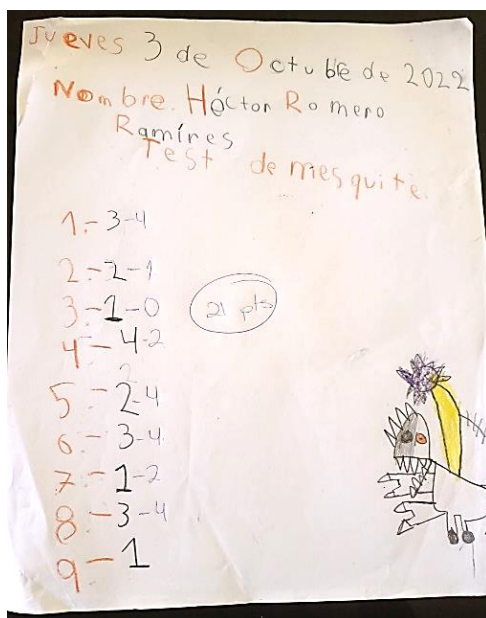 Jueves 3 de Octubre de 2022
Nombre. Héctor Romero
Ramíres
Test de mesquite.
1.- 3-4
2.-2-1
3-1-0
21 pts
4- 4-2
2
5-2-4
6.- 3-4
7.- 1-2
8-3-4
9-1